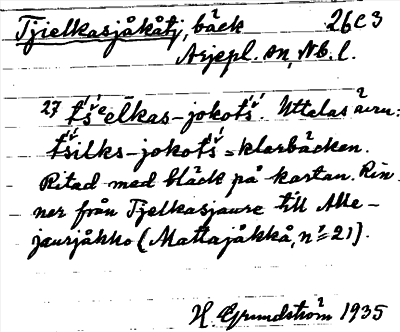 Tjielkasjåkåtj, bäck 26C3
Arjepl. sn, Nb. l.
27 t́š́ᵉelkas-jokot́š́. Uttalas även:
t́śilks-jokot́š́ = klarbäcken.
Ritad med bläck på kartan. Rin-
ner från Tjelkasjaure till Alle-
jaurjåkko (Mattajåkkå, n:= 21).
H. Grundström 1935